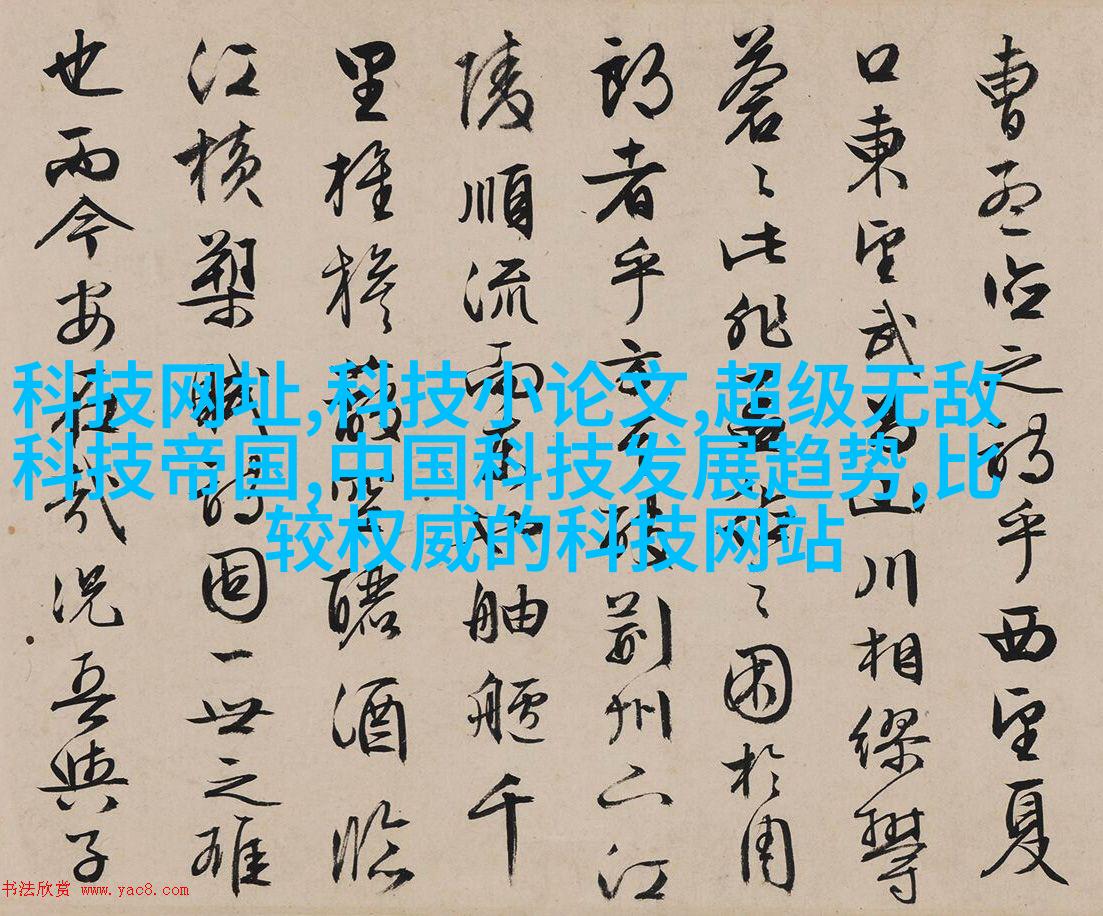 曹孟德之詩乎西望夏
口東望武昌山川相繆鬱
蒼〻此非孟德〻困於周
郎者乎方其破荊州下江
陵順流而東也舳艫千
里旌旗蔽空釃酒臨
江橫槊賦詩固一世之雄
也而今安在哉況吾與子
科技网址,科技小论文,超级无敌
科技帝国,中国科技发展趋势,比
较权威的科技网站
书法欣赏 www.yac8.com